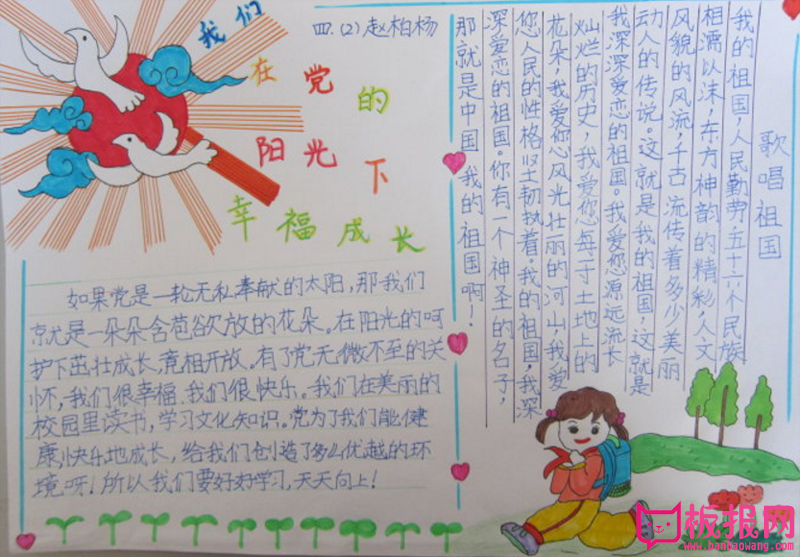 四.(2)赵柏杨
我们
在党的
阳光下
幸福成长
如果党是一轮无私奉献的太阳,那我们
就是一朵朵含苞欲放的花朵。在阳光的呵
护下茁壮成长,竟相开放。有了党无微不至的关
怀,我们很幸福,我们很快乐。我们在美丽的
校园里读书,学习文化知识。党为了我们能健
康,快乐地成长,给我们创造了多么优越的环
境呀!所以我们要好好学习,天天向上!
歌唱祖国
我的祖国,人民勤劳五十六个民族
相濡以沫,东方神韵的精彩,人文
风貌的风流,千古流传着多少美丽
动人的传说。这就是我的祖国,这就是
我深深爱恋的祖国。我爱您源远流长
灿烂的历史,我爱您每寸土地上的
花朵,我爱您风光壮丽的河山,我爱
您人民的性格坚韧执着。我的祖国,我深
深爱恋的祖国。你有一个神圣的名子,
那就是中国,我的祖国啊!
板报网
www.banbaowang.com